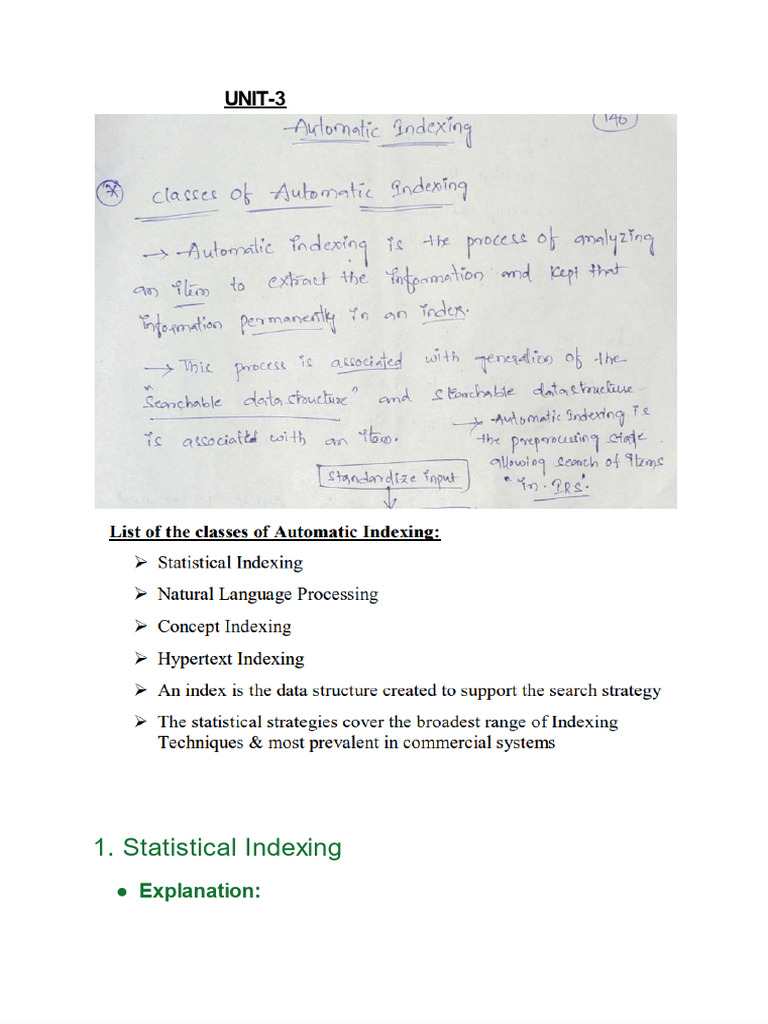 UNIT-3
Automatic Indexing
146
classes of Automatic Indexing
→ Automatic indexing is the process of analyzing
an item to extract the information and kept that
information permanently in an index.
→ This process is associated with generation of the
"Searchable data structure" and searchable datastructure
is associated with an item.
→ Automatic Indexing is
the preprocessing stage
allowing search of items
"in IRS".
Standardize input
List of the classes of Automatic Indexing:
➢ Statistical Indexing
➢ Natural Language Processing
➢ Concept Indexing
➢ Hypertext Indexing
➢ An index is the data structure created to support the search strategy
➢ The statistical strategies cover the broadest range of Indexing
Techniques & most prevalent in commercial systems
1. Statistical Indexing
● Explanation: